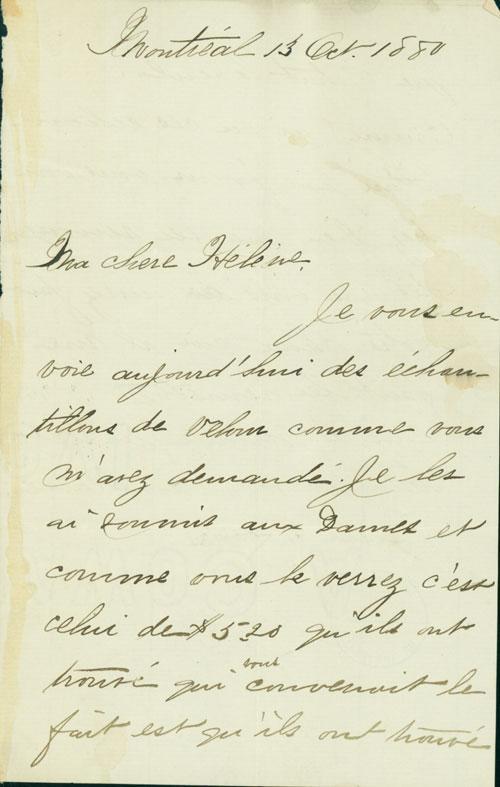 Montréal 13 Oct. 1880
Ma chere Hélène,
Je vous en-
voie aujourd'hui des échan-
tillons de velour comme vous
m'avez demandé. Je les
ai soumis aux Dames et
comme vous le verrez c'est
celui de $5.20 qu'ils ont
trouvé qui vous convenait le
fait est qu'ils ont trouvé